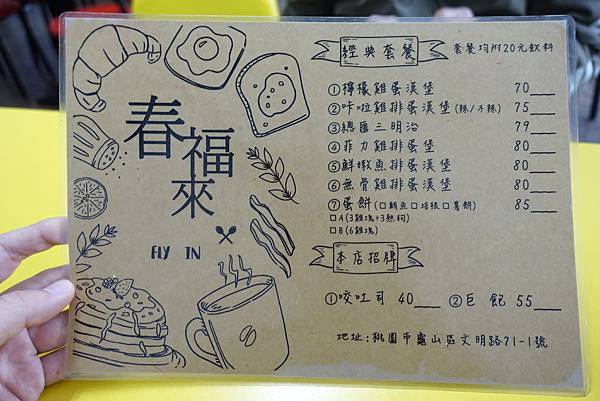 春福來
FLY IN
經典套餐
套餐均附20元飲料
①檸檬雞蛋漢堡 70
②咔啦雞排蛋漢堡(辣/不辣) 75
③總匯三明治 79
④菲力雞排蛋堡 80
⑤鮮嫩魚排蛋漢堡 80
⑥無骨雞排蛋漢堡 80
⑦蛋餅(□鮪魚□培根□薯餅) 85
□A(3雞塊+3熱狗)
□B(6雞塊)
本店招牌
①咬吐司 40 ②巨飽 55
地址:桃園市龜山區文明路71-1號